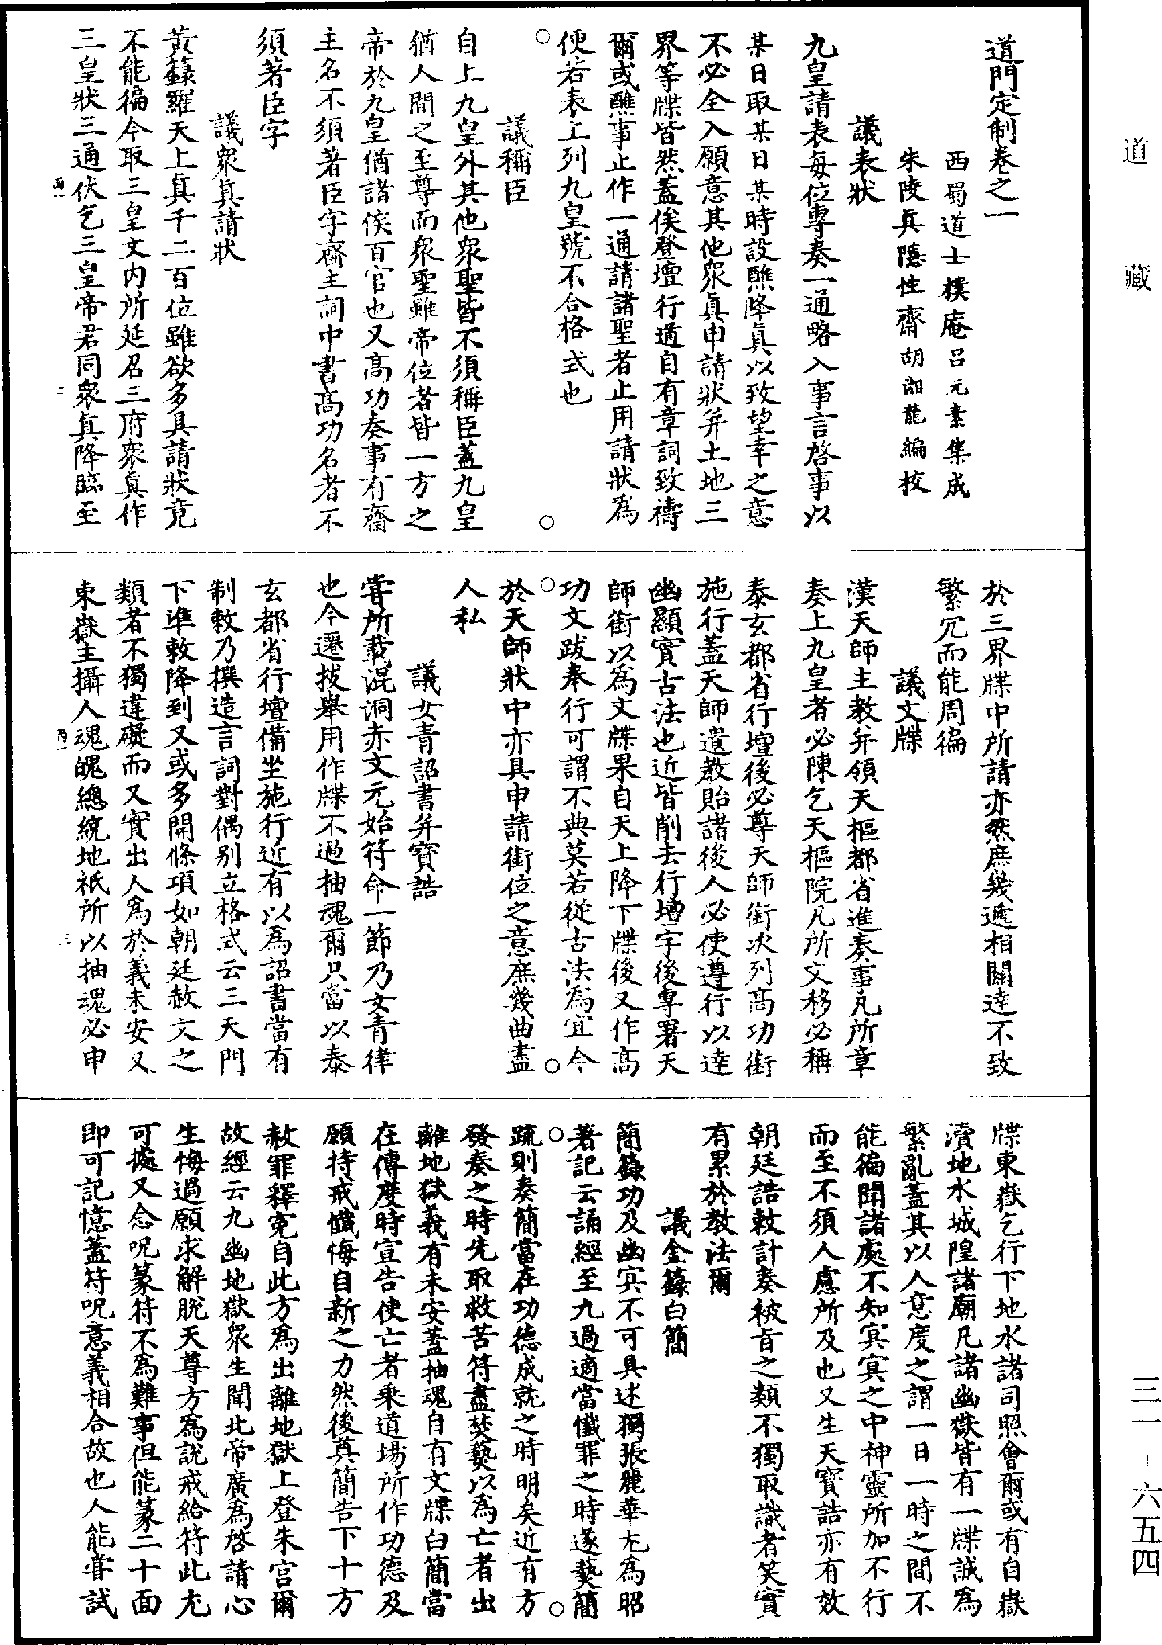 道門定制卷之一
西蜀道士樸庵呂元素集成
朱陵真隱性齋胡湘龍編校
議表狀
九皇請表每位專奏一通略入事言啓事以
某日取某日某時設醮降真以致望幸之意
不必全入願意其他衆真申請狀并土地三
界等牒皆然蓋俟登壇行道自有章詞致禱
爾或醮事止作一通請諸聖者止用請狀為
便若表上列九皇號不合格式也
議稱臣
自上九皇外其他衆聖皆不須稱臣蓋九皇
猶人間之至尊而衆聖雖帝位者皆一方之
帝於九皇猶諸侯百官也又高功奏事有齋
主名不須著臣字齋主詞中書高功名者不
須著臣字
議衆真請狀
黃籙羅天上真千二百位雖欲多具請狀竟
不能徧今取三皇文內所延召三府衆真作
三皇狀三通伏乞三皇帝君同衆真降臨至
於三界牒中所請亦然庶幾遞相關達不致
繁冗而能周徧
議文牒
漢天師主教并領天樞都省進奏事凡所章
奏上九皇者必陳乞天樞院凡所文移必稱
泰玄都省行壇後必尊天師銜次列高功銜
施行蓋天師遺教貽諸後人必使遵行以達
幽顯實古法也近皆削去行壇字後專署天
師銜以為文牒果自天上降下牒後又作高
功文跋奉行可謂不典莫若從古法為宜今
於天師狀中亦具申請銜位之意庶幾曲盡
人私
議女青詔書并寶誥
嘗所載混洞赤文元始符命一節乃女青律
也今遷拔舉用作牒不過抽魂爾只當以泰
玄都省行壇備坐施行近有以為詔書當有
制敕乃撰造言詞對偶別立格式云三天門
下準敕降到又或多開條項如朝廷赦文之
類者不獨違礙而又實出人為於義未安又
東嶽主攝人魂魄總統地祇所以抽魂必申
牒東嶽乞行下地水諸司照會爾或有自嶽
瀆地水城隍諸廟凡諸幽獄皆有一牒誠為
繁亂蓋其以人意度之謂一日一時之間不
能徧聞諸處不知冥冥之中神靈所加不行
而至不須人慮所及也又生天寶誥亦有效
朝廷誥敕計奏被旨之類不獨取識者笑實
有累於教法爾
議金籙白簡
簡錄功及幽冥不可具述獨張麗華尤為昭
著記云誦經至九過適當懺罪之時遂爇簡
疏則奏簡當在功德成就之時明矣近有方
發奏之時先取救苦符盡焚爇以為亡者出
離地獄義有未安蓋抽魂自有文牒白簡當
在傳度時宣告使亡者乘道場所作功德及
願持戒懺悔自新之力然後真簡告下十方
赦罪釋冤自此方為出離地獄上登朱宮爾
故經云九幽地獄衆生聞北帝廣為啓請心
生悔過願求解脫天尊方為說戒給符此尤
可據又念呪篆符不為難事但能篆二十面
即可記憶蓋符呪意義相合故也人能嘗試
道藏
三一–六五四